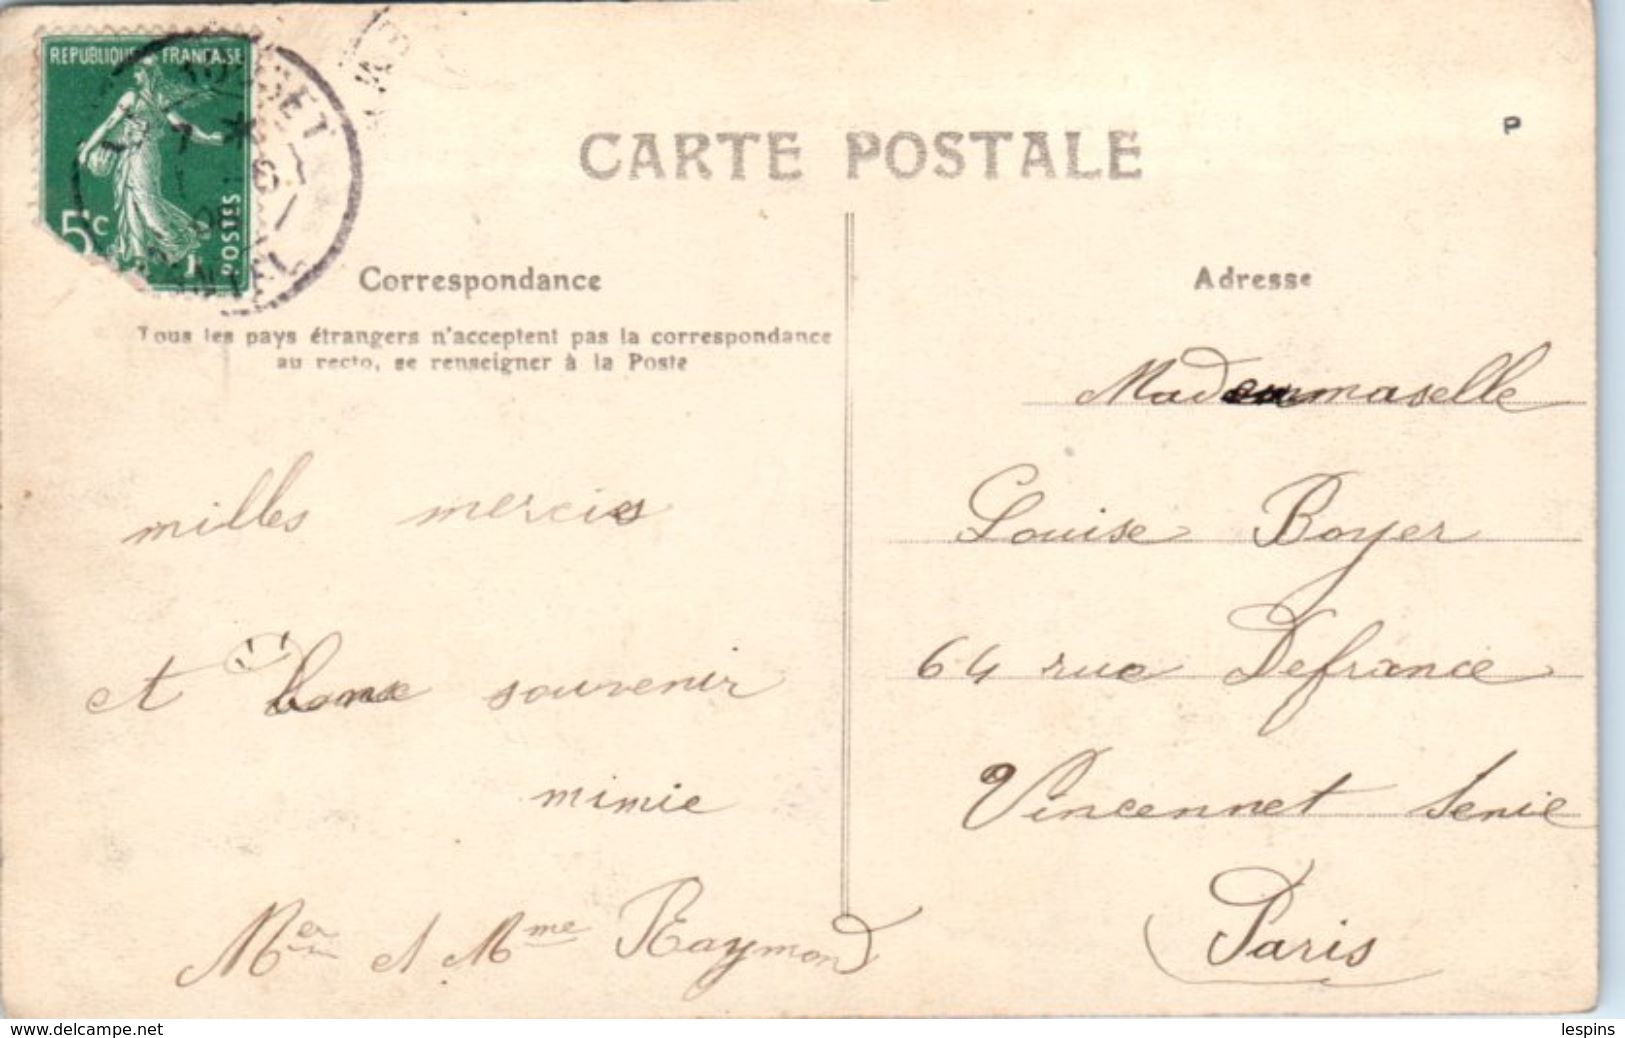 REPUBLIQUE FRANCAISE
5c
POSTES
CARTE POSTALE
P
Correspondance
Adresse
Tous les pays étrangers n'acceptent pas la correspondance
au recto, se renseigner à la Poste
Mademmaselle
Louise Boyer
64 rue Defrance
Vincennet Senie
Paris
milles mercies
et bonne souvenir
mimie
Mer et Mme Raymond
www.delcampe.net
lespins